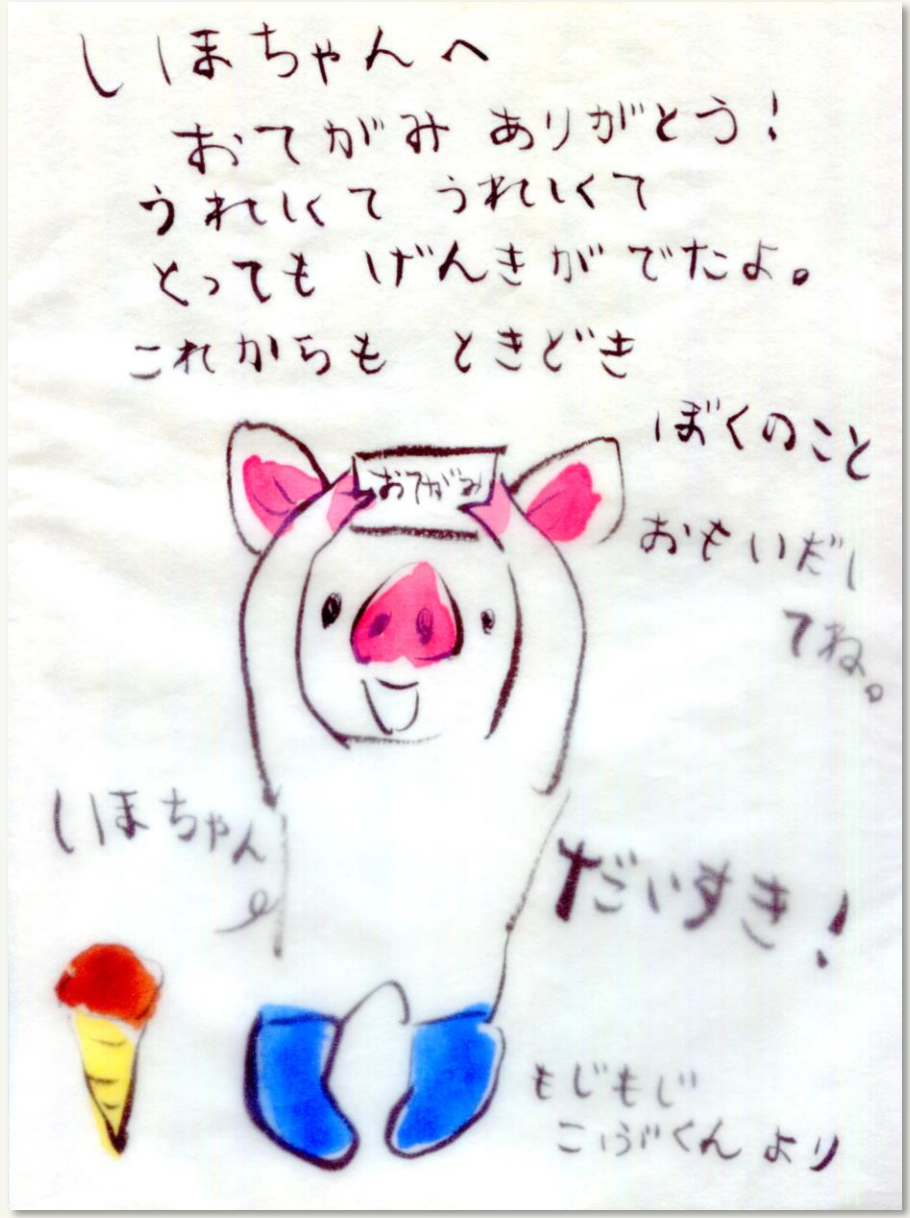 しほちゃんへ
おてがみ ありがとう!
うれしくて うれしくて
とっても げんきがでたよ。
これからも ときどき
ぼくのこと
おもいだし
てね。
おてがみ
しほちゃん
だいすき!
もじもじ
こぶたくん より